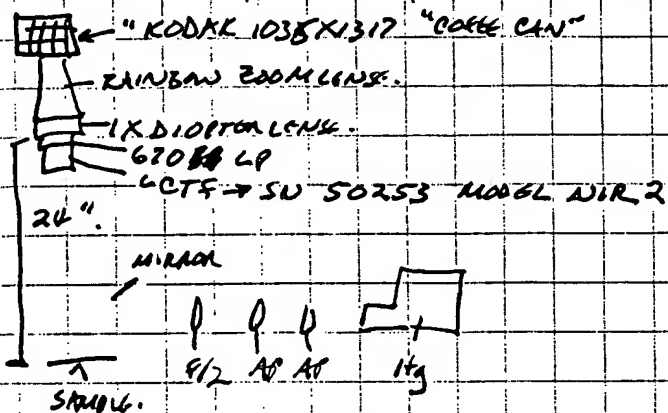 "KODAK 1035X1317 "COFFE CAN"
RAINBOW ZOOM LENSE.
1X DIOPTOR LENSE.
620 LP
LCTF → SN 50253 MODEL NIR 2
24".
MIRROR
F/2 AP AP Hg
SAMPLE.